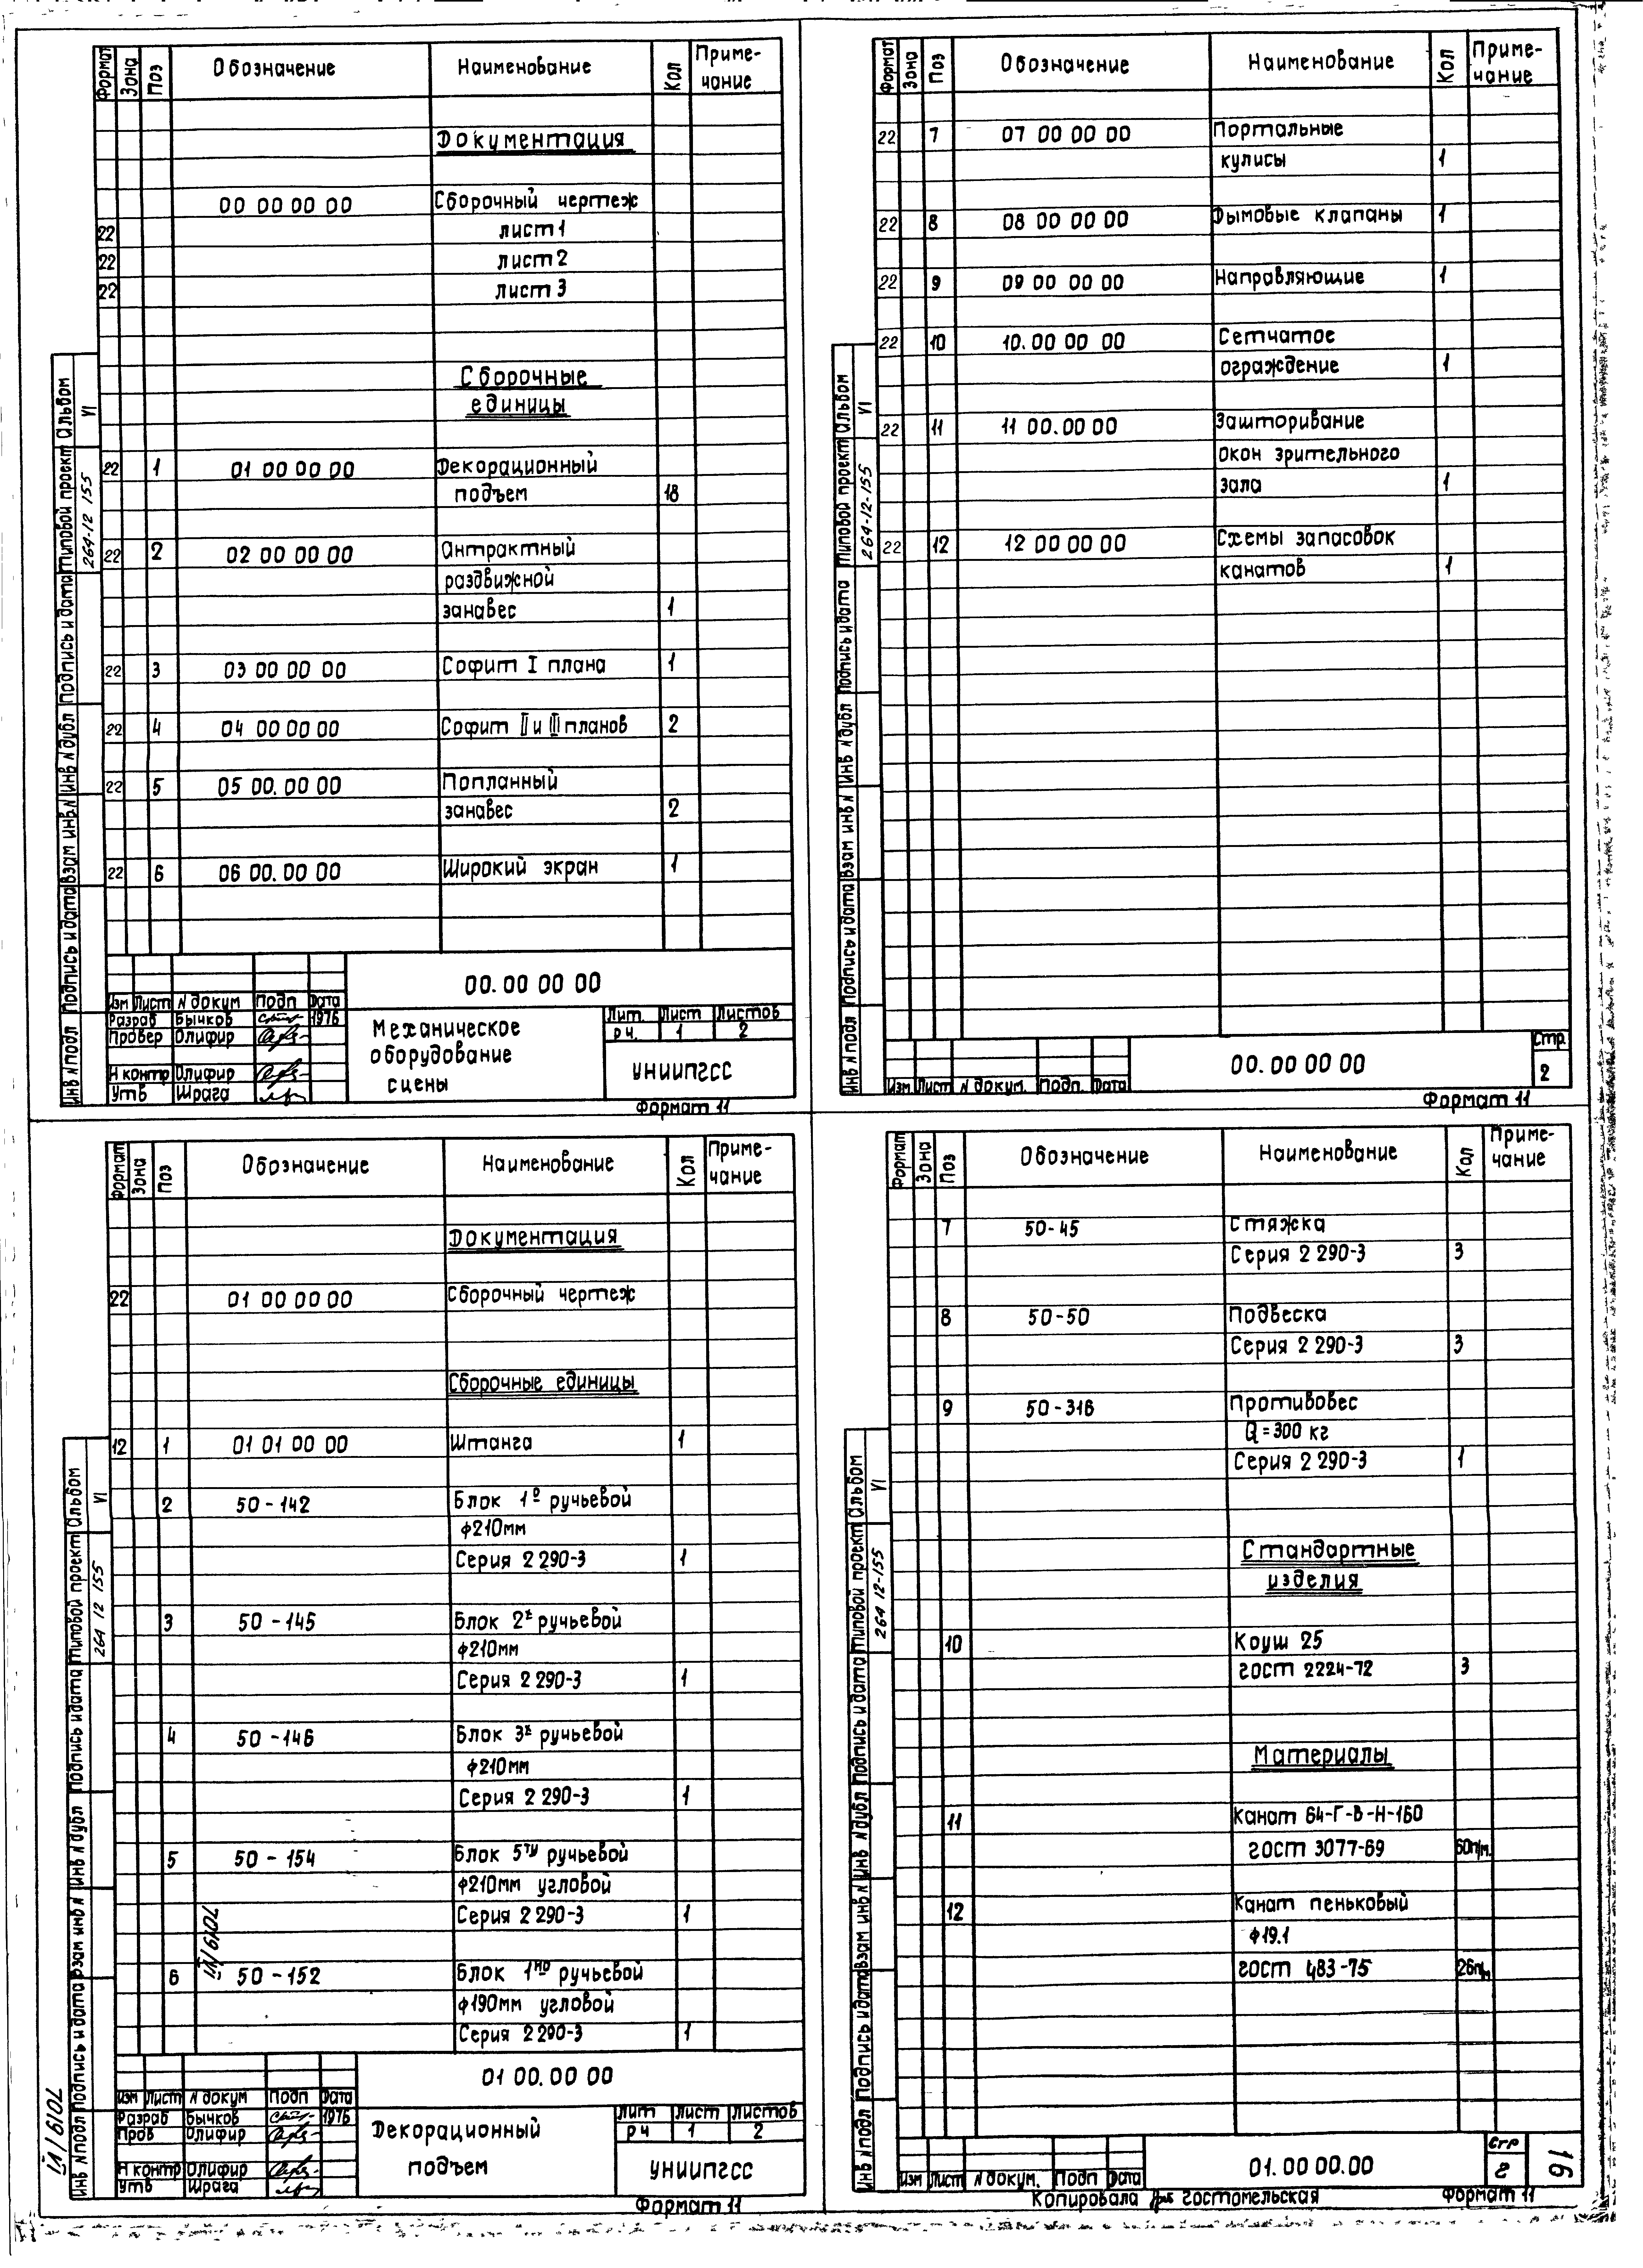 Формат Зона Поз Обозначение Наименование Кол Приме-
чание
Документация
00 00 00 00 Сборочный чертеж
22 лист 1
22 лист 2
22 лист 3
Сборочные
единицы
22 1 01 00 00 00 Декорационный
подъем 18
22 2 02 00 00 00 Антрактный
раздвижной
занавес 1
22 3 03 00 00 00 Софит I плана 1
22 4 04 00 00 00 Софит II и III планов 2
22 5 05 00. 00 00 Попланный
занавес 2
22 6 06 00. 00 00 Широкий экран 1
Альбом VI
Типовой проект 264-12 155
Подпись и дата
Инв N дубл
Взам инв N
Подпись и дата
Инв N подл
00. 00 00 00
Изм Лист N докум Подп Дата
Разраб Бычков 1976
Провер Олифир
Н контр Олифир
Утв Шрага
Механическое
оборудование
сцены
Лит. Лист Листов
рч. 1 2
УНИИПГСС
Формат 11
Формат Зона Поз Обозначение Наименование Кол Приме-
чание
22 7 07 00 00 00 Портальные
кулисы 1
22 8 08 00 00 00 Дымовые клапаны 1
22 9 09 00 00 00 Направляющие 1
22 10 10. 00 00 00 Сетчатое
ограждение 1
22 11 11 00. 00 00 Зашторивание
окон зрительного
зала 1
22 12 12 00 00 00 Схемы запасовок
канатов 1
Альбом VI
Типовой проект 264-12-155
Подпись и дата
Инв N дубл
Взам инв N
Подпись и дата
Инв N подл
Изм Лист N докум. Подп. Дата
00. 00 00 00
Стр
2
Формат 11
Формат Зона Поз Обозначение Наименование Кол Приме-
чание
Документация
22 01 00 00 00 Сборочный чертеж
Сборочные единицы
12 1 01 01 00 00 Штанга 1
2 50-142 Блок 1º ручьевой
ф210мм
Серия 2 290-3 1
3 50-145 Блок 2х ручьевой
ф210мм
Серия 2 290-3 1
4 50-146 Блок 3х ручьевой
ф210мм
Серия 2 290-3 1
5 50-154 Блок 5ти ручьевой
ф210мм угловой
Серия 2 290-3 1
6 50-152 Блок 1но ручьевой
ф190мм угловой
Серия 2 290-3 1
7019/VI
Альбом VI
Типовой проект 264 12 155
Подпись и дата
Инв N дубл
Взам инв N
Подпись и дата
Инв N подл
7019/VI
01 00. 00 00
Изм Лист N докум Подп Дата
Разраб Бычков 1976
Пров Олифир
Н контр Олифир
Утв Шрага
Декорационный
подъем
Лит Лист Листов
рч 1 2
УНИИПГСС
Формат 11
Формат Зона Поз Обозначение Наименование Кол Приме-
чание
7 50-45 Стяжка
Серия 2 290-3 3
8 50-50 Подвеска
Серия 2 290-3 3
9 50-316 Противовес
Q = 300 кг
Серия 2 290-3 1
Стандартные
изделия
10 Коуш 25
ГОСТ 2224-72 3
Материалы
11 Канат 64-Г-В-Н-160
ГОСТ 3077-69 60п/м.
12 Канат пеньковый
ф19.1
ГОСТ 483-75 26п/м
Альбом VI
Типовой проект 264 12-155
Подпись и дата
Инв N дубл
Взам инв N
Подпись и дата
Инв N подл
Изм Лист N докум. Подп Дата
01. 00 00. 00
Стр
2
16
Копировала Гостомельская
Формат 11